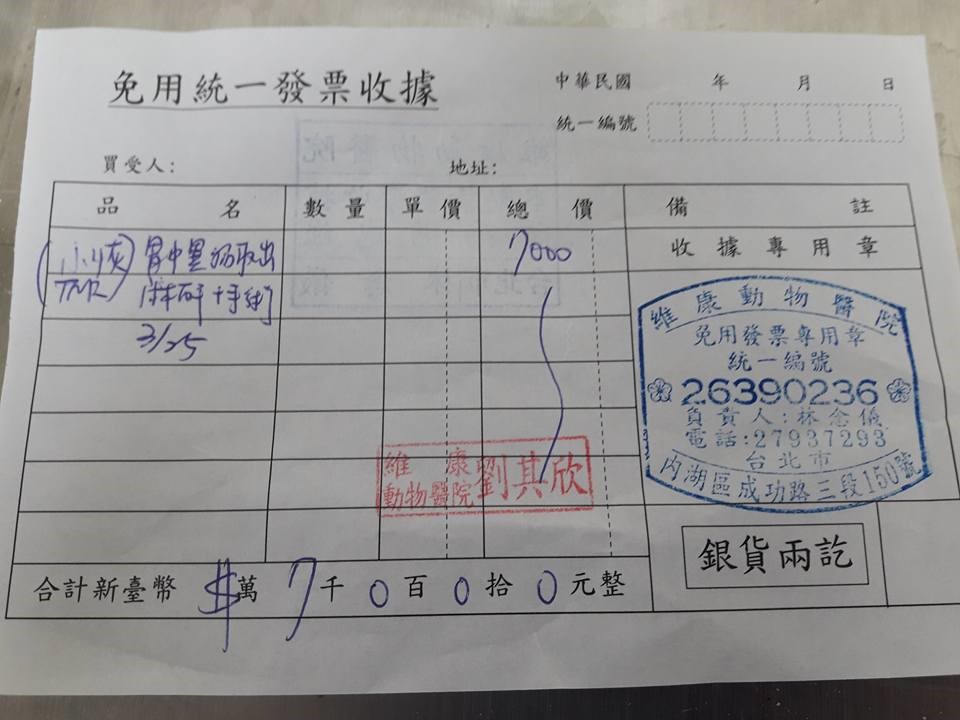 免用統一發票收據
中華民國 年 月 日
統一編號
買受人: 地址:
品名 數量 單價 總價 備註
(小灰) 胃中異物取出 7000
手術
3/25
收據專用章
維康動物醫院
免用發票專用章
統一編號
26390236
負責人:林念儀
電話:27937293
台北市
內湖區成功路三段150號
維康
動物醫院
劉其欣
銀貨兩訖
合計新臺幣 $萬 7千 0百 0拾 0元整